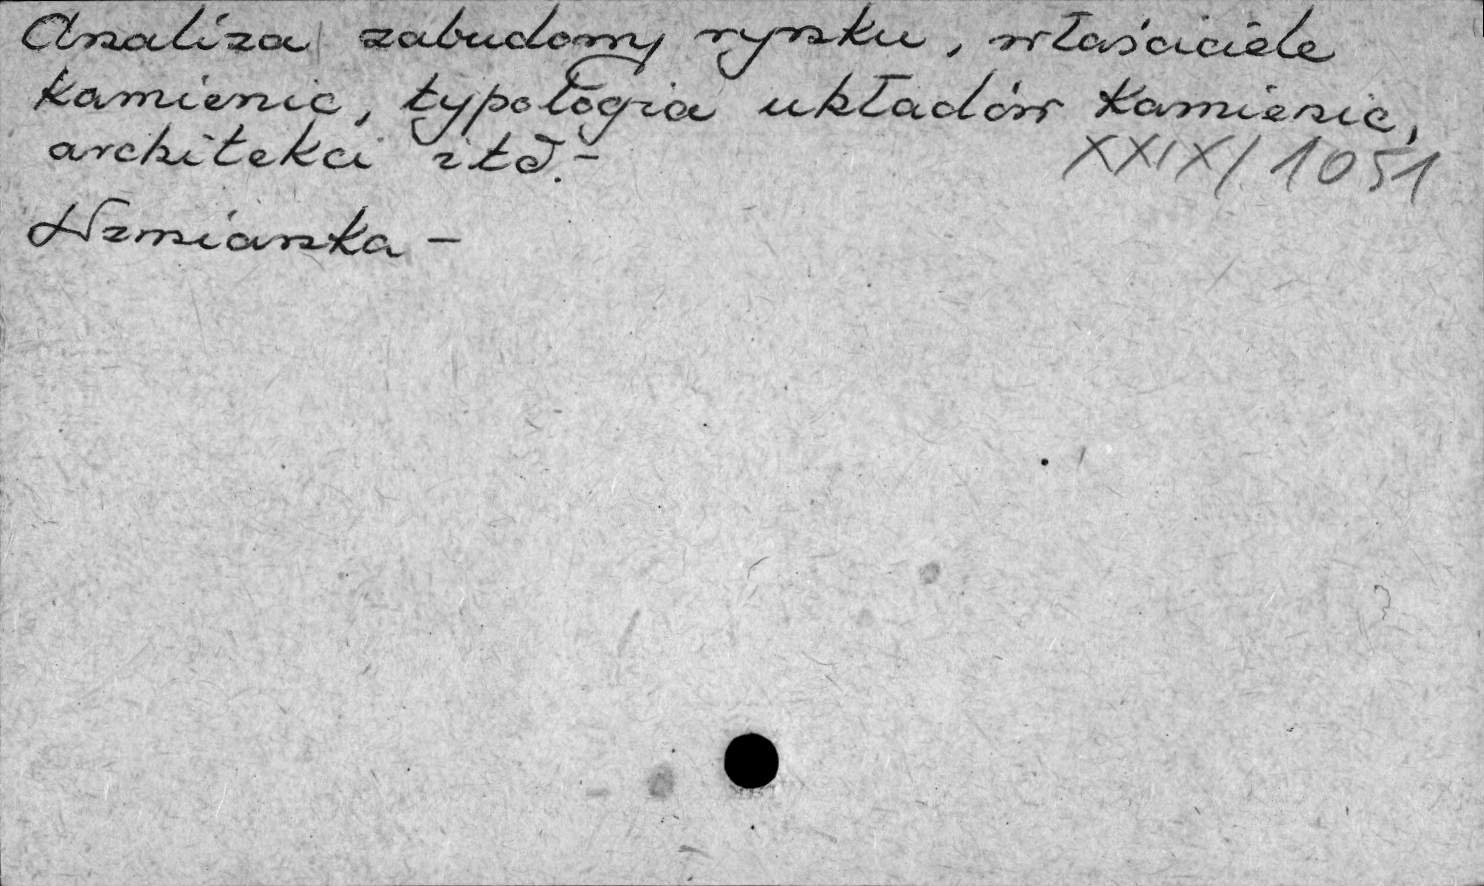 Analiza zabudowy rynku, właściciele
kamienic, typologia układów kamienic,
architekci itd.-
XXIX/1051
Wzmianka -